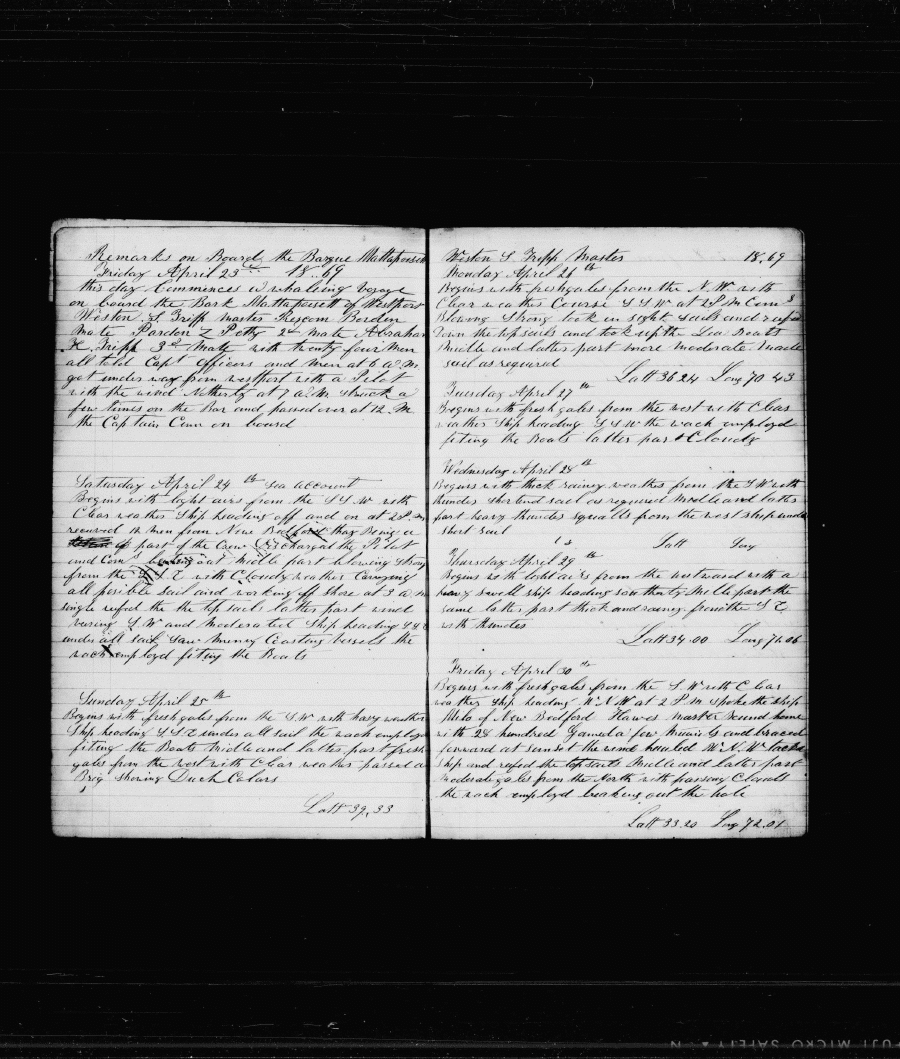 Remarks on Board the Barque Mattapoisett
Friday April 23 18.69
this day Commences a whaleing voyage
on bound the Bark Mattapoisett of Westport
Weston S Tripp master Rescom Borden
mate Pardon Z Petty 2nd mate Abraham
H. Tripp 3d mate with twenty four Men
all told Capt Officers and men at 6 a m
got under way from westport with a Pilot
with the wind Notherly at 7 a.m. struck a
few times on the Bar and passed over at 12. M
the Captain Cum on board
Saturday April 24 th Sea account
Begins with light airs from the S S W with
Clear weather Ship heading off and on at 2 P. m
received men from New Bedford thay Being a
part of the Crew Discharged the Pilot
and Com beating out midle part blowing strong
from the with Cloudy weather Carrying
all posible sail and working off shore at 3 a m
single reefed the the top sails latter part wind
S W and Moderated Ship heading
under all sail saw Meney Coasting Vessels the
wach employd fiting the Boats
Sunday April 25 th
Begins with fresh gales from the S W with hazy weather
Ship heading under all sail the wach employd
fiting the Boats Midle and latter part fresh
gales from the west with Clear weather passed a
Brig showing Duch Colars
Latt 39.33
Weston S Tripp Master 18.69
Monday April 26 th
Begins with fresh gales from the N. W. with
Clear weather Course S S W at 2 P. m Com s
Blowing Strong took in light sails and
the top sails and took up the Lea Boats
Midle and latter part more moderate. Made
sail as required
Latt 36 24 Long 70 43
Tuesday April 27 th
Begins with fresh gales from the west with Clear
weather Ship heading S S W the wach employd
fiting the Boats latter part Cloudy
Wednesday April 28 th
Begins with thick rainey weather from the S W with
thunder shortend sail as required Midle and latter
part heavy thunder squalls from the west ship under
short sail
Latt Long
Thursday April 29 th
Begins with light airs from the westward with a
heavy swell ship heading southerly Midle part the
same latter part thick and rainey from the
with thunder
Latt 34.00 Long 71.06
Friday April 30 th
Begins with fresh gales from the S. W with Clear
weather Ship heading W N W at 2 P. m spoke the ship
Milo of New Bedford Hawes master bound home
with 28 hundred and braced
forward at sunset the wind hauled W. N. W tacked
ship and reefed the topsails Midle and latter part
moderate gales from the North with passing Clouds
the wach employd breaking out the hole
Latt 33.20 Long 72.01
FUJI MICRO SAFETY N